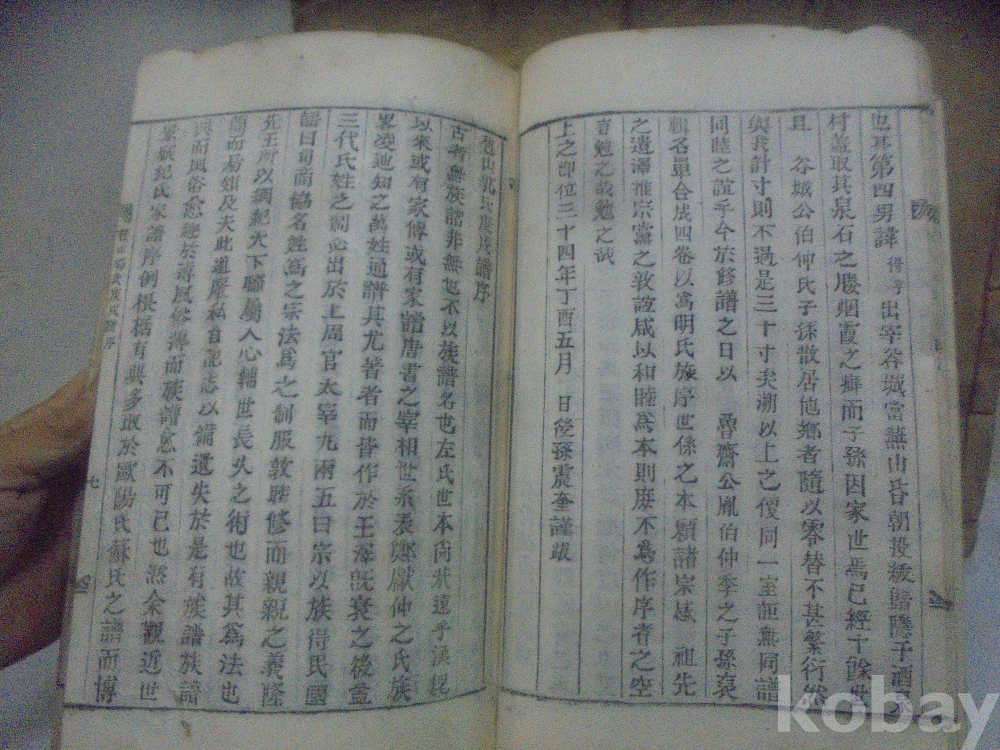 也其第四男諱得孚出宰谷城當燕山昏朝投紱歸隱于酒
村盖取其泉石之勝烟霞之癖而子孫因家世焉已經十餘世
且 谷城公伯仲氏子孫散居他鄕者隨以零替不甚繁衍然
與我計寸則不過是三十寸矣溯以上之便同一室詎無同譜
同睦之誼乎今於修譜之日以 魯齋公胤伯仲季之子孫裒
輯名單合成四卷以爲明氏族序世係之本願諸宗感 祖先
之遺澤推宗黨之敦誼咸以和睦爲本則庶不爲作序者之空
言勉之哉勉之哉
上之卽位三十四年丁酉五月 日後孫震奎謹跋
包山郭氏族譜序
古者無族譜非無也不以族譜名也左氏世本尙矣遠乎漢
以來或有家傳或有家譜唐書之宰相世系表鄭獻仲之氏族
畧凌迪知之萬姓通譜其尤著者而皆作於王澤旣衰之後盖
三代氏姓之 必出於上周官太宰九兩五曰宗以族得民國
語曰司商協名姓爲之宗法爲之制服敦睦修而親親之義隆
先王所以綱紀天下聯屬人心輔世長久之術也故其爲法也
簡而易知及夫此道 私自 志以備遺失於是有族譜族譜
興而風俗愈 於 風俗薄而族譜愈不可已也然余觀近世
氏家譜序 根據有 多取於歐陽氏蘇氏之譜而博
七